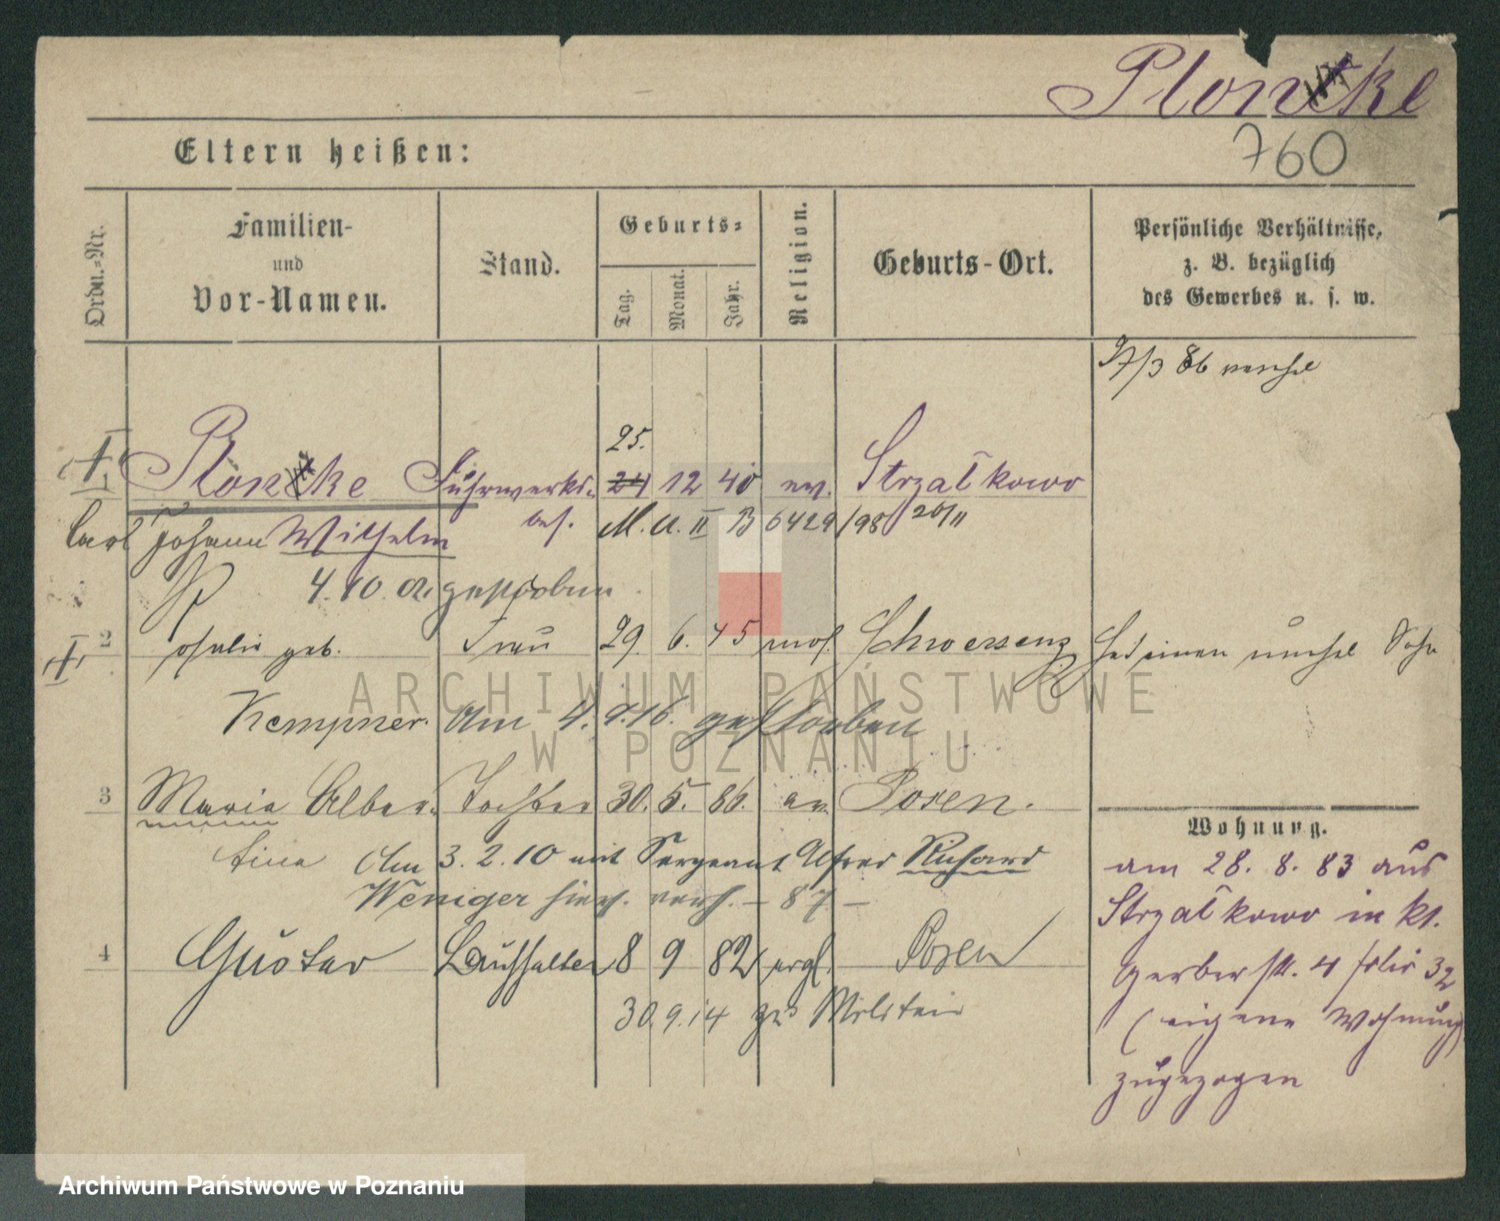 Plonke
760
Eltern heißen:
Ordn.-Nr.
Familien-
und
Vor-Namen.
Stand.
Geburts-
Tag.
Monat.
Jahr.
Religion.
Geburts-Ort.
Persönliche Verhältnisse,
z. B. bezüglich
des Gewerbes u. s. w.
86
1 Plonke Fuhrwerks- 25. 24 12 40 ev. Strzalkowo
Carl Johann Wilhelm bes. M. U. II B 6429/98 20/11
4.10.02 gestorben
2 Rosalie geb. Frau 29. 6. 45 mos. Schwersenz Hat einen unehel Sohn
Kempner. Am 4. 9.16. gestorben
3 Maria Alber- Tochter 30. 5. 86. ev. Posen.
tina Am 3. 2. 10 mit Sergeant Alfred Richard
Weniger hier verh. - 87 -
4 Gustav Haushalter 8 9 82 Posen
30.9.14 zum Militair
Wohnung.
am 28. 8. 83 aus
Strzalkowo in kl.
Gerberstr. 4 folio 32
(eigene Wohnung)
zugezogen
ARCHIWUM PAŃSTWOWE
W POZNANIU
Archiwum Państwowe w Poznaniu